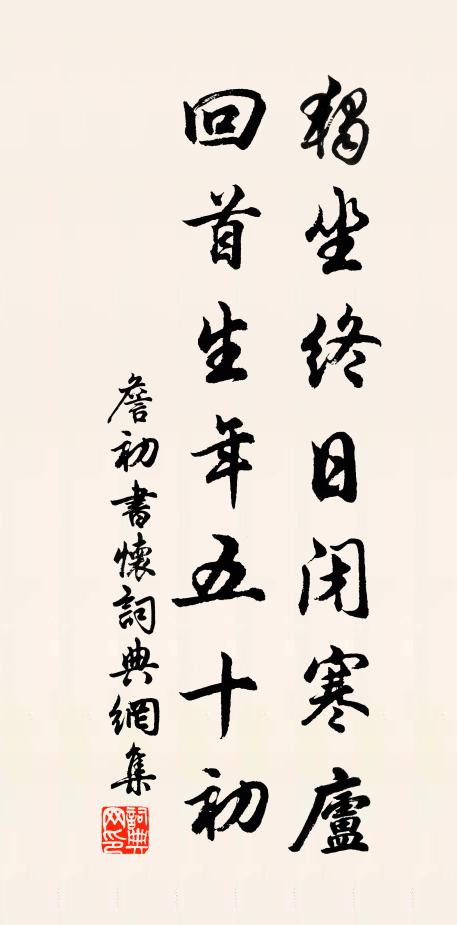 獨坐終日閉寒廬
回首生年五十初
詹初書懷詞典網集
詞典網印